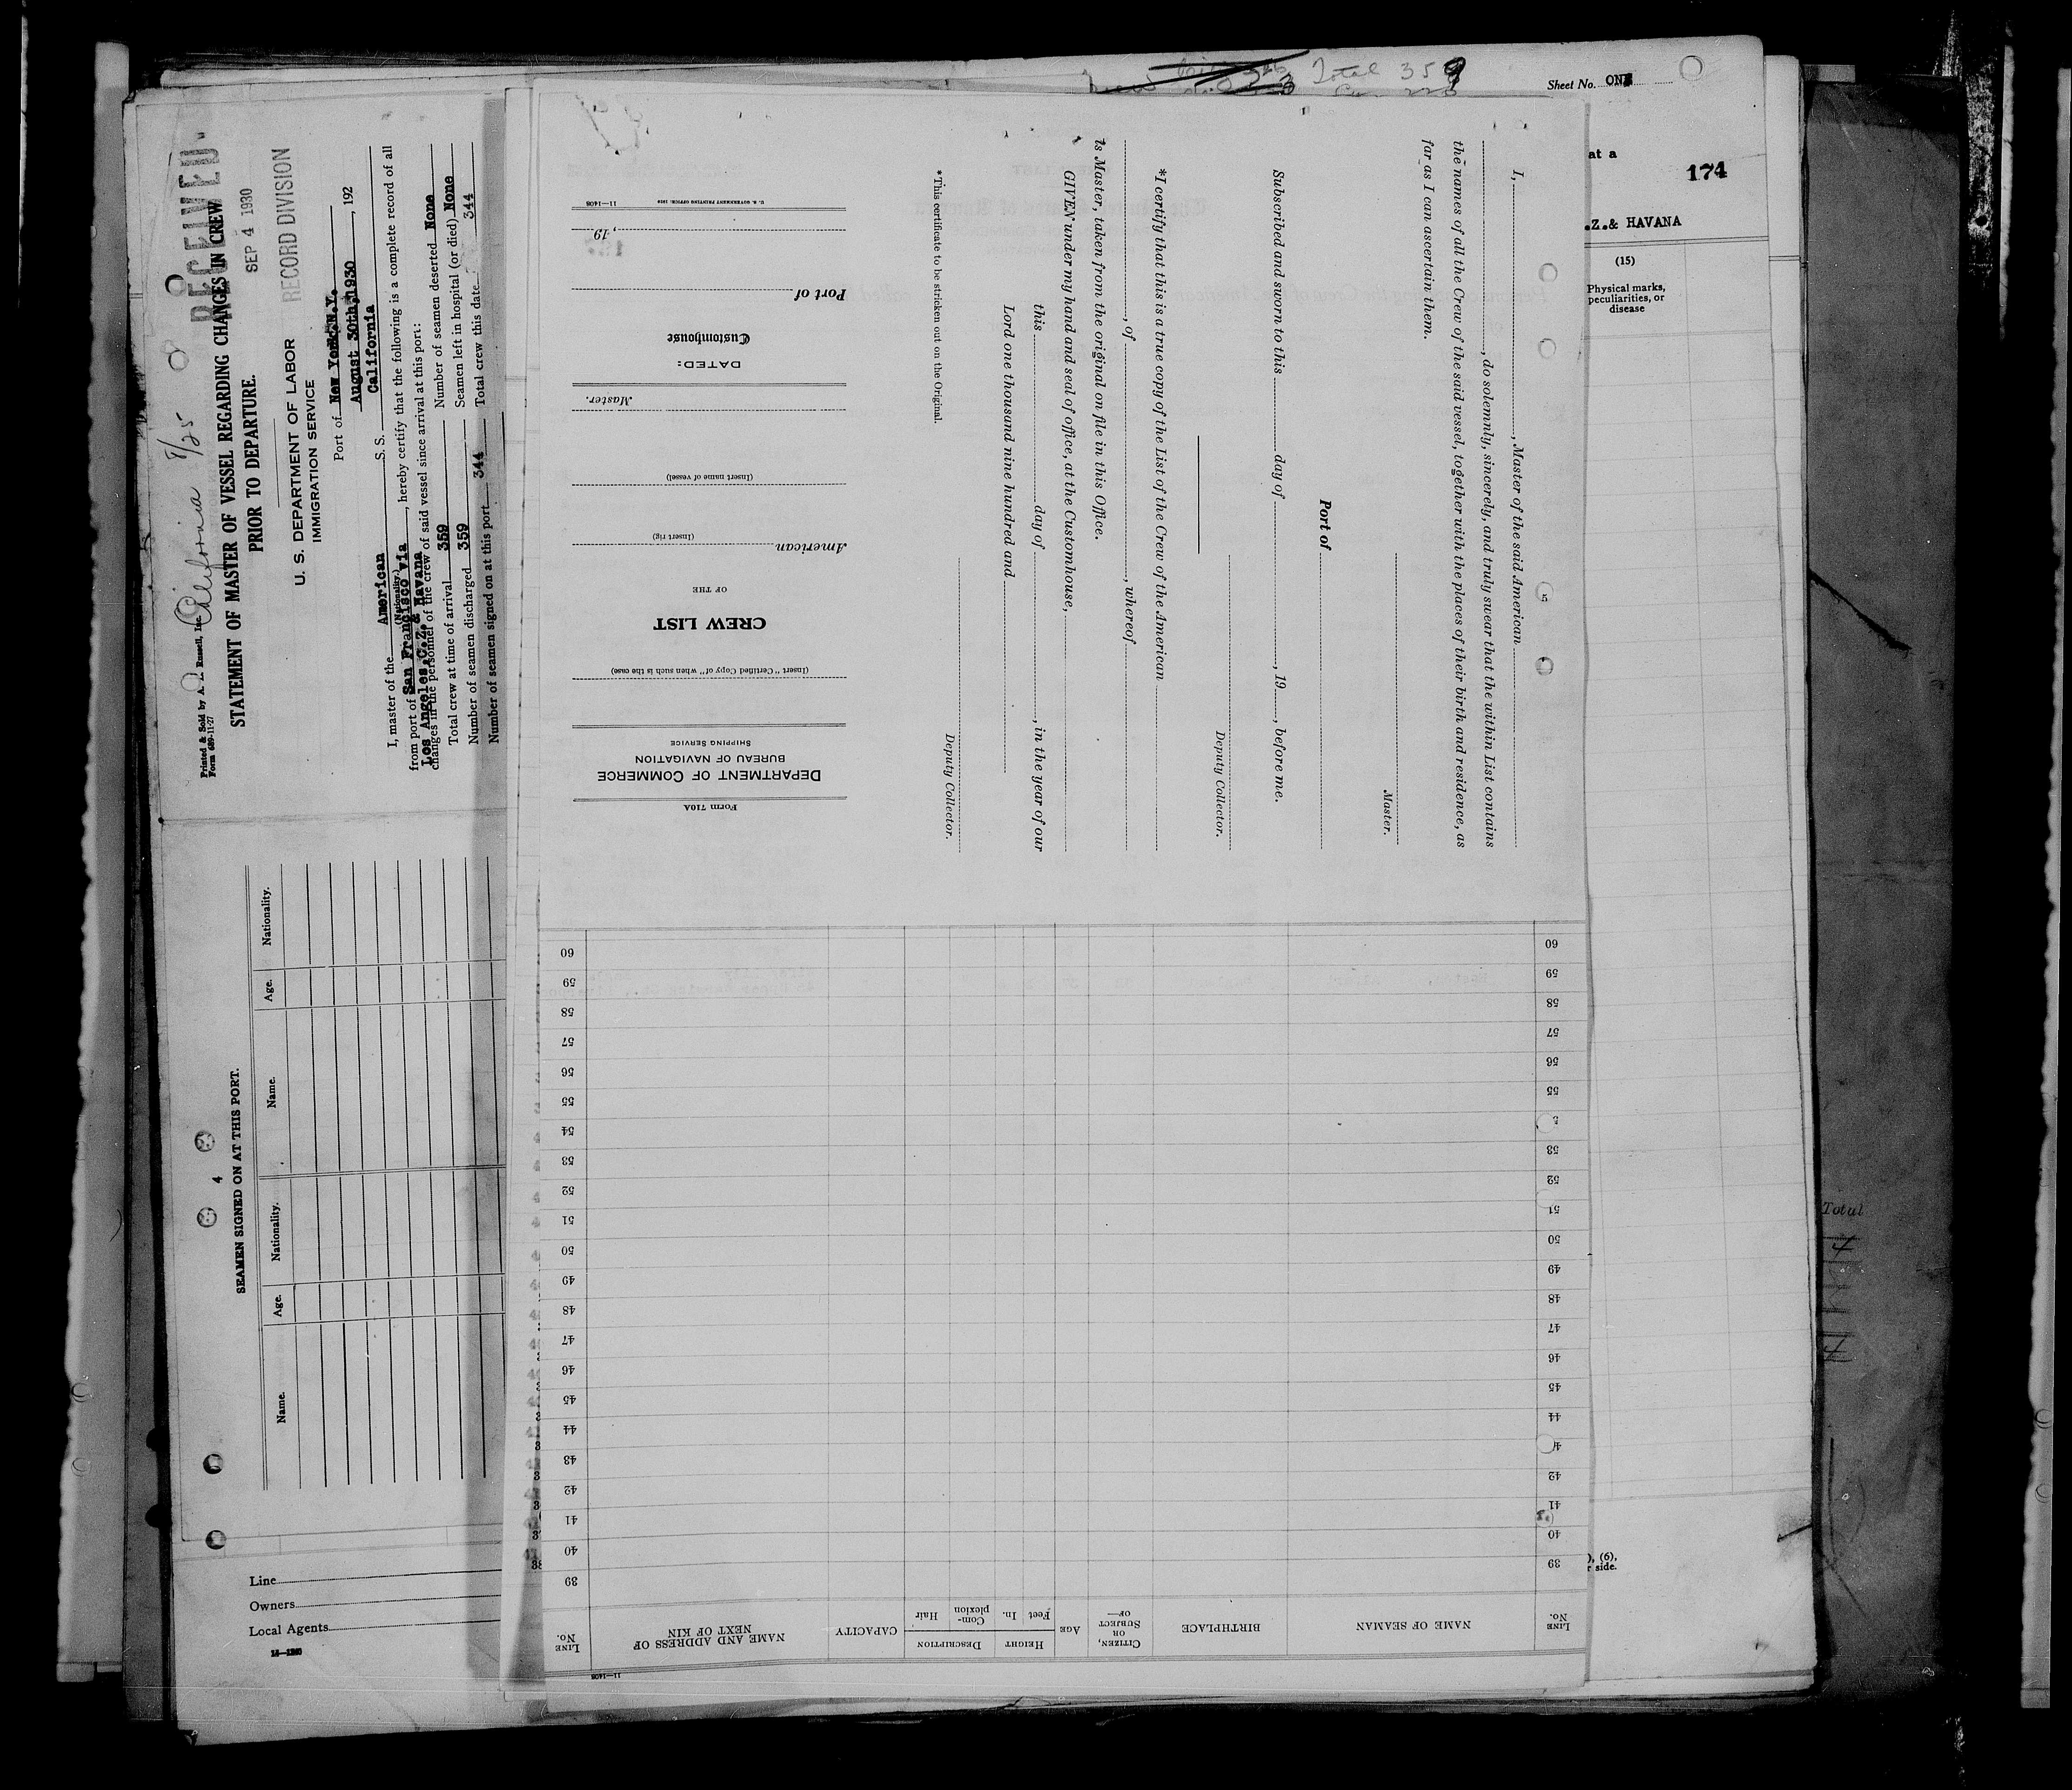 Total 359
Sheet No. ONE
at a
174
.Z.& HAVANA
(15)
Physical marks,
peculiarities, or
disease
), (6),
r side.
Total
California 8/25
Printed & Sold by A. L. Russell, Inc.
Form 689-11-27
RECEIVED.
SEP 4 1930
RECORD DIVISION
STATEMENT OF MASTER OF VESSEL REGARDING CHANGES IN CREW
PRIOR TO DEPARTURE.
U. S. DEPARTMENT OF LABOR
IMMIGRATION SERVICE
Port of New York, N.Y.
August 30th, 1930, 192
I, master of the American S. S. California
(Nationality.)
from port of San Francisco via, hereby certify that the following is a complete record of all
Los Angeles, C.Z. & Havana
changes in the personnel of the crew of said vessel since arrival at this port:
Total crew at time of arrival 359 Number of seamen deserted None
Number of seamen discharged 359 Seamen left in hospital (or died) None
Number of seamen signed on at this port 344 Total crew this date 344
4
SEAMEN SIGNED ON AT THIS PORT.
Name. Age. Nationality. Name. Age. Nationality.
Line
Owners
Local Agents
Form 710A
DEPARTMENT OF COMMERCE
BUREAU OF NAVIGATION
SHIPPING SERVICE
(Insert "Certified Copy of" when such is the case)
CREW LIST
OF THE
American
(Insert rig)
(Insert name of vessel)
Master.
DATED:
Customhouse
Port of
, 19
U. S. GOVERNMENT PRINTING OFFICE: 1929 11—1408
I, , Master of the said American
, do solemnly, sincerely, and truly swear that the within List contains
the names of all the Crew of the said vessel, together with the places of their birth and residence, as
far as I can ascertain them.
Master.
Port of
Subscribed and sworn to this day of , 19 , before me.
Deputy Collector.
*I certify that this is a true copy of the List of the Crew of the American
, of , whereof
is Master, taken from the original on file in this Office.
GIVEN under my hand and seal of office, at the Customhouse,
this day of , in the year of our
Lord one thousand nine hundred and
Deputy Collector.
*This certificate to be stricken out on the Original.
LINE No. NAME OF SEAMAN BIRTHPLACE CITIZEN, OR SUBJECT OF— AGE HEIGHT Feet In. DESCRIPTION Com-plexion Hair CAPACITY NAME AND ADDRESS OF NEXT OF KIN LINE No.
39 39
40 40
41 41
42 42
43
44 44
45 45
46 46
47 47
48 48
49 49
50 50
51 51
52 52
53 53
54
55 55
56 56
57 57
58 58
59 59
60 60
11—1408